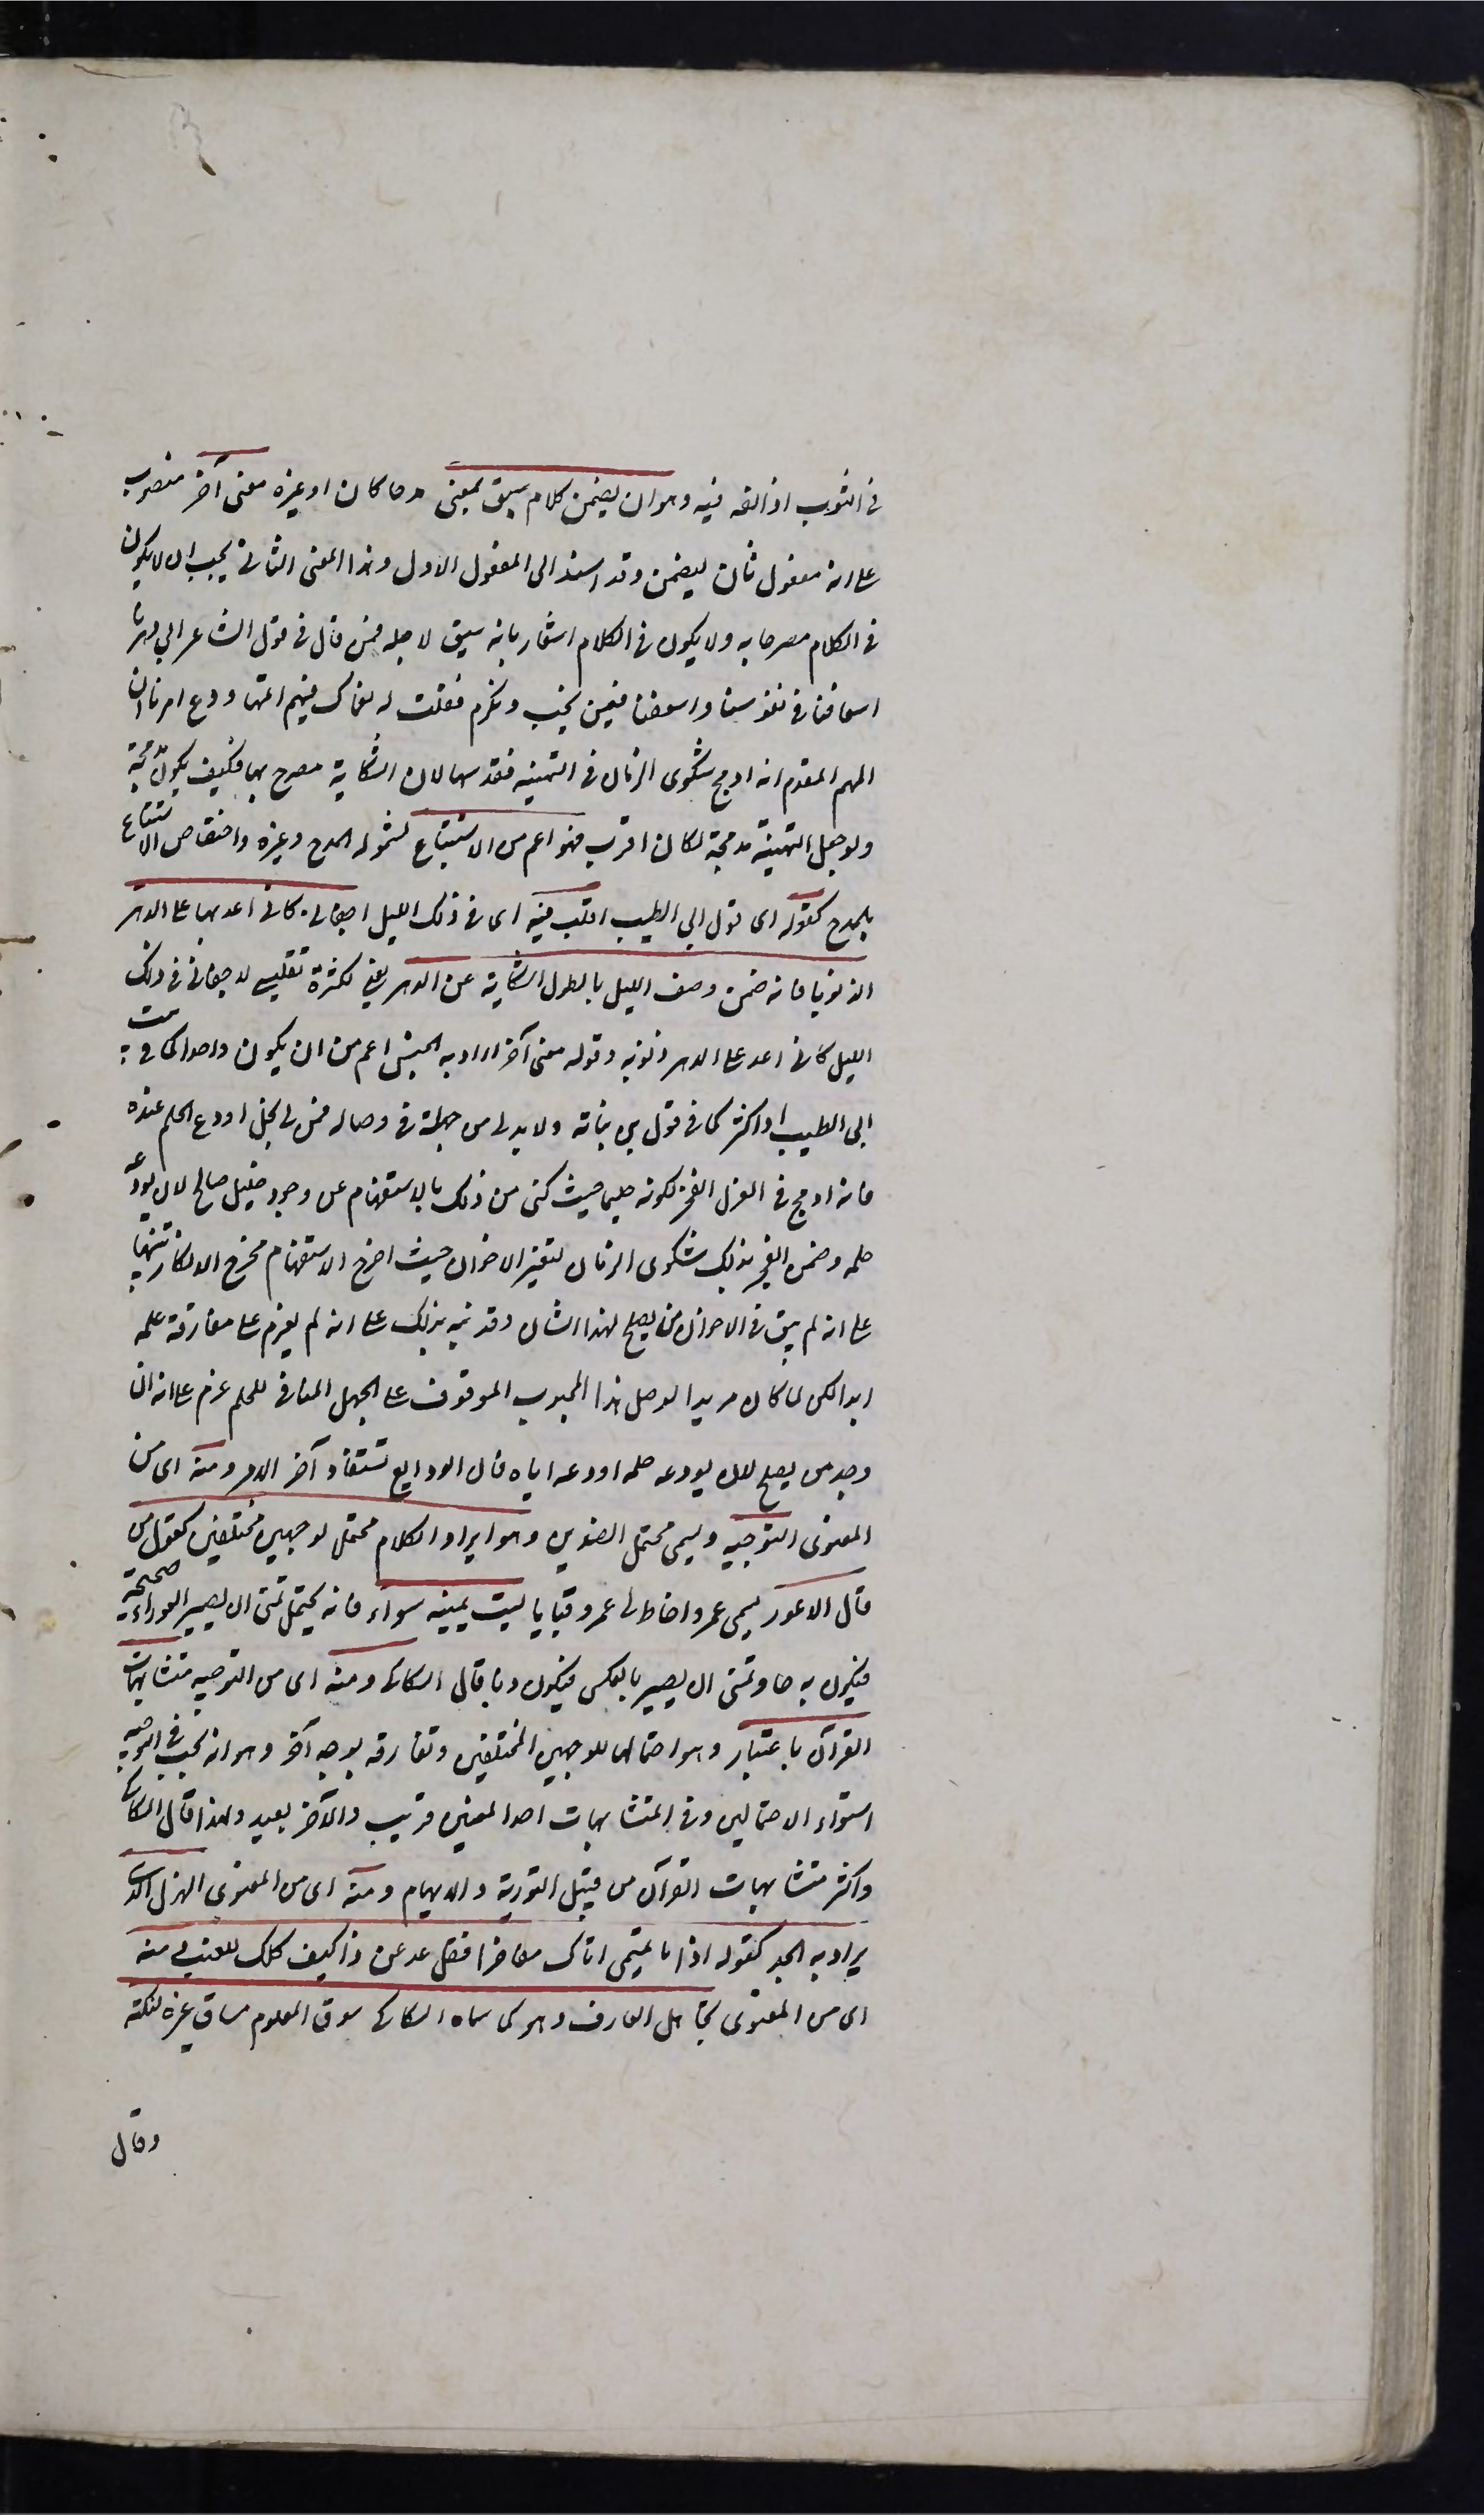 فى الثوب اذا لفه فيه وهو ان يضمن كلام سيق لمعنى مدحا كان او غيره معنى آخر منصوب
على انه مفعول ثان ليضمن وقد اسند الى المفعول الاول وهذا المعنى الثانى يجب ان لا يكون
فى الكلام مصرحا به ولا يكون فى الكلام اشعار بانه سيق لاجله فمن قال فى قول الشاعر ابى دهرنا
اسعافنا فى نفوسنا واسعفنا فيمن نحب ونكرم فقلت له نعماك فيهم اتمها ودع امرنا ان
المهم المقدم انه ادمج شكوى الزمان فى التهنية فقد سها لان الشكاية مصرح بها فكيف يكون مدمجة
ولو جعل التهنية مدمجة لكان اقرب فهو اعم من الاستتباع لشموله المدح وغيره واختصاص الاستتباع
بالمدح كقوله اى قول ابى الطيب اقلب فيه اى فى ذلك الليل اجفانى كانى اعد بها على الدهر
الذنوبا فانه ضمن وصف الليل بالطول الشكاية عن الدهر يعنى لكثرة تقليبى لاجفانى فى ذلك
الليل كانى اعد على الدهر ذنوبه وقوله معنى آخر اراد به الجنس اعم من ان يكون واحدا كما فى بيت
ابى الطيب او اكثر كما فى قول بن نباته ولا بد لى من جهلة فى وصاله فمن لى بخل اودع الحلم عنده
فانه ادمج فى الغزل الفخر لكونه حليما حيث كنى من ذلك بالاستفهام عن وجود خليل صالح لان يودعه
حلمه وضمن الفخر بذلك شكوى الزمان لتغير الاخوان حيث اخرج الاستفهام مخرج الانكار تنبيها
على انه لم يبق فى الاخوان من يصلح لهذا الشان وقد نبه بذلك على انه لم يعزم على مفارقة حلمه
ابدا لكن لما كان مريدا لوصل هذا المحبوب الموقوف على الجهل المنافى للحلم عزم على انه ان
وجد من يصلح لان يودعه حلمه اودعه اياه فان الودايع تستعاد آخر الامر ومنه اى من
المعنوى التوجيه ويسمى محتمل الضدين وهو ايراد الكلام محتمل لوجهين مختلفين كقول من
قال لاعور يسمى عمرو اخاط لى عمرو قبا يا ليت عينيه سواء فانه يحتمل تمنى ان يصير العوراء صحيحة
فيكون مدحا وتمنى ان يصير بالعكس فيكون ذما قال السكاكى ومنه اى من التوجيه متشابهات
القرآن باعتبار وهو احتمالها للوجهين المختلفين وتفارقه بوجه آخر وهو انه يجب فى التوجيه
استواء الاحتمالين وفى المتشابهات احد المعنيين قريب والآخر بعيد ولهذا قال السكاكى
واكثر متشابهات القرآن من قبيل التورية والايهام ومنه اى من المعنوى الهزل الذى
يراد به الجد كقوله اذا ما تميمى اتاك مفاخرا فقل عد عن ذا كيف اكلك للضب ومنه
اى من المعنوى تجاهل العارف وهو كما سماه السكاكى سوق المعلوم مساق غيره لنكتة
وقال